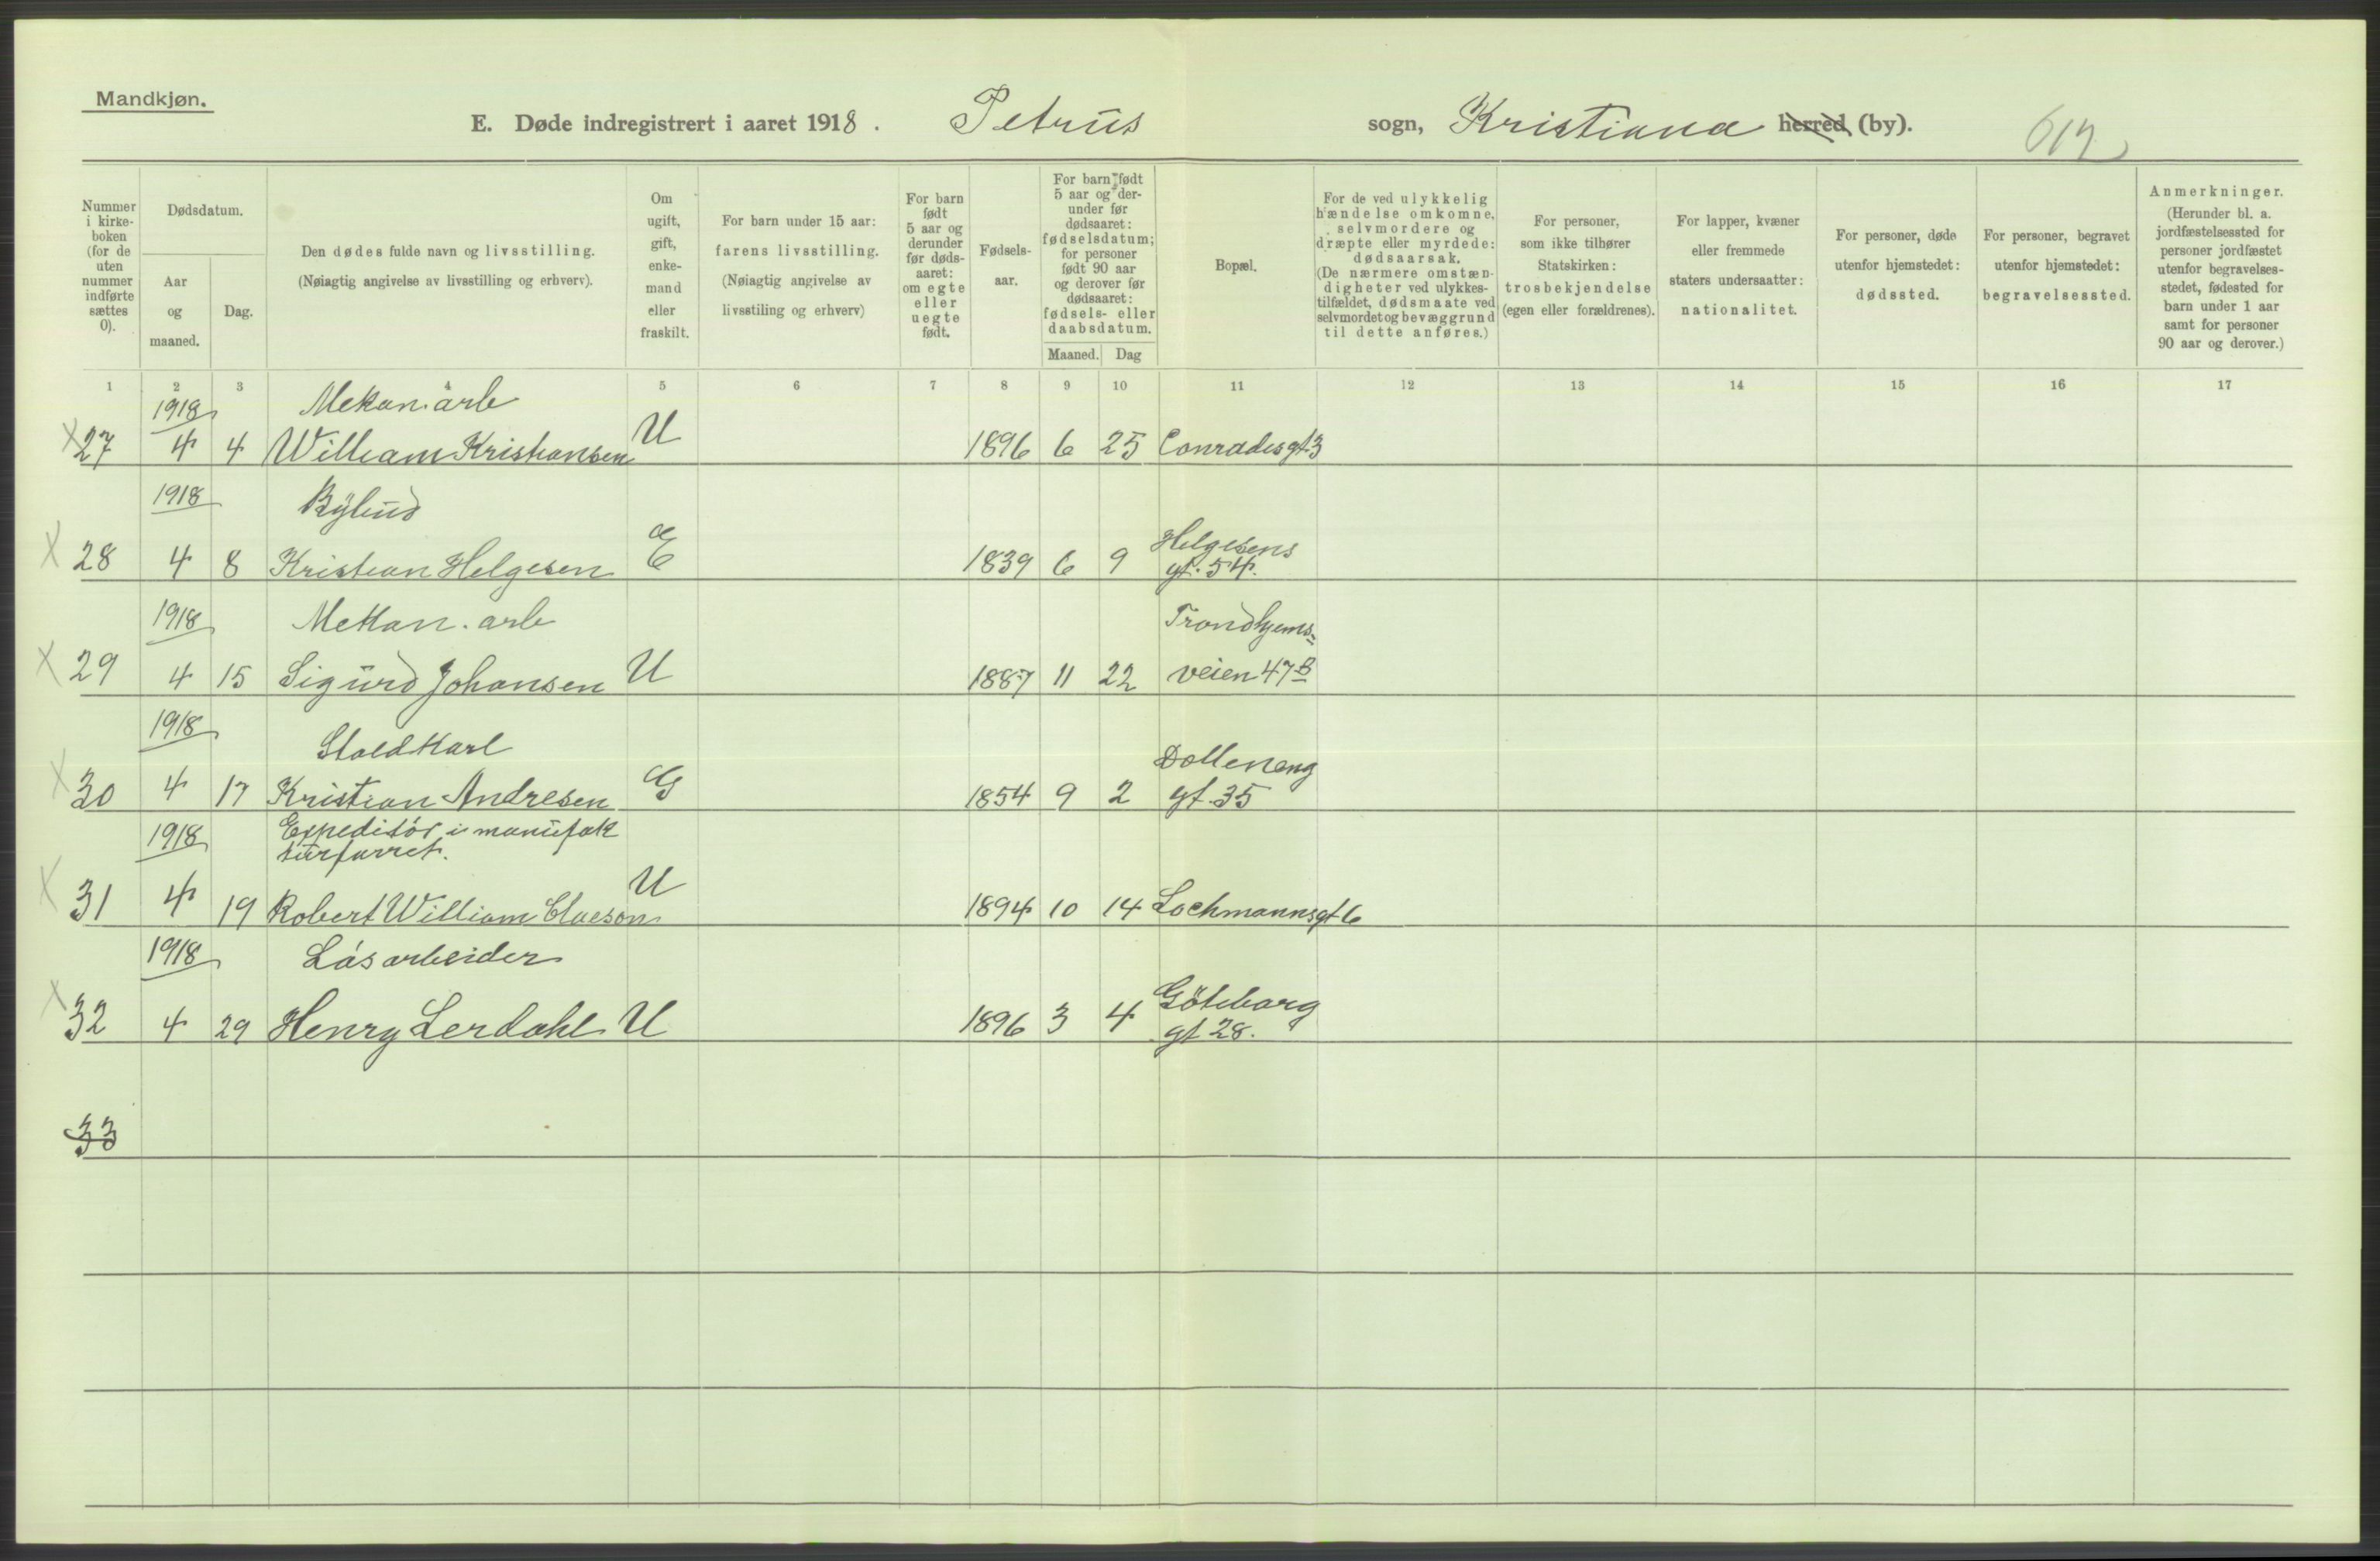 Mandkjøn.
E. Døde indregistrert i aaret 1918. Petrus sogn, Kristiana herred (by).
Nummer i kirke-boken (for de uten nummer indførte sættes 0).
Dødsdatum.
Aar og maaned.
Dag.
Den dødes fulde navn og livsstilling.
(Nøiagtig angivelse av livsstilling og erhverv).
Om ugift, gift, enke-mand eller fraskilt.
For barn under 15 aar: farens livsstilling.
(Nøiagtig angivelse av livsstiling og erhverv)
For barn født 5 aar og derunder før døds-aaret: om egte eller uegte født.
Fødsels-aar.
For barn født 5 aar og der-under før dødsaaret: fødselsdatum; for personer født 90 aar og derover før dødsaaret: fødsels- eller daabsdatum.
Maaned. Dag
Bopæl.
For de ved ulykkelig hændelse omkomne, selvmordere og dræpte eller myrdede: dødsaarsak.
(De nærmere omstæn-digheter ved ulykkes-tilfældet, dødsmaate ved selvmordet og bevæggrund til dette anføres.)
For personer, som ikke tilhører Statskirken: trosbekjendelse (egen eller forældrenes).
For lapper, kvæner eller fremmede staters undersaatter: nationalitet.
For personer, døde utenfor hjemstedet: dødssted.
For personer, begravet utenfor hjemstedet: begravelsessted.
Anmerkninger.
(Herunder bl. a. jordfæstelsessted for personer jordfæstet utenfor begravelses-stedet, fødested for barn under 1 aar samt for personer 90 aar og derover.)
1 2 3 4 5 6 7 8 9 10 11 12 13 14 15 16 17
1918 Mekan. arb
x 27 4 4 William Kristiansen U 1896 6 25 Conradisgt 3
1918 Bybud
x 28 4 8 Kristian Helgesen E 1839 6 9 Helgesens gt. 54.
1918 Mekan. arb
x 29 4 15 Sigurd Johansen U 1887 11 22 Trondhjems-veien 47 B
1918 Staldkarl
x 30 4 17 Kristian Andresen G 1854 9 2 Dælleneng gt. 35
1918 Expeditør i manufak
turforret.
x 31 4 19 Robert William Claeson U 1894 10 14 Lochmannsgt 6
1918 Løsarbeider
x 32 4 29 Henry Lerdahl U 1896 3 4 Göteborg gt 28.
33